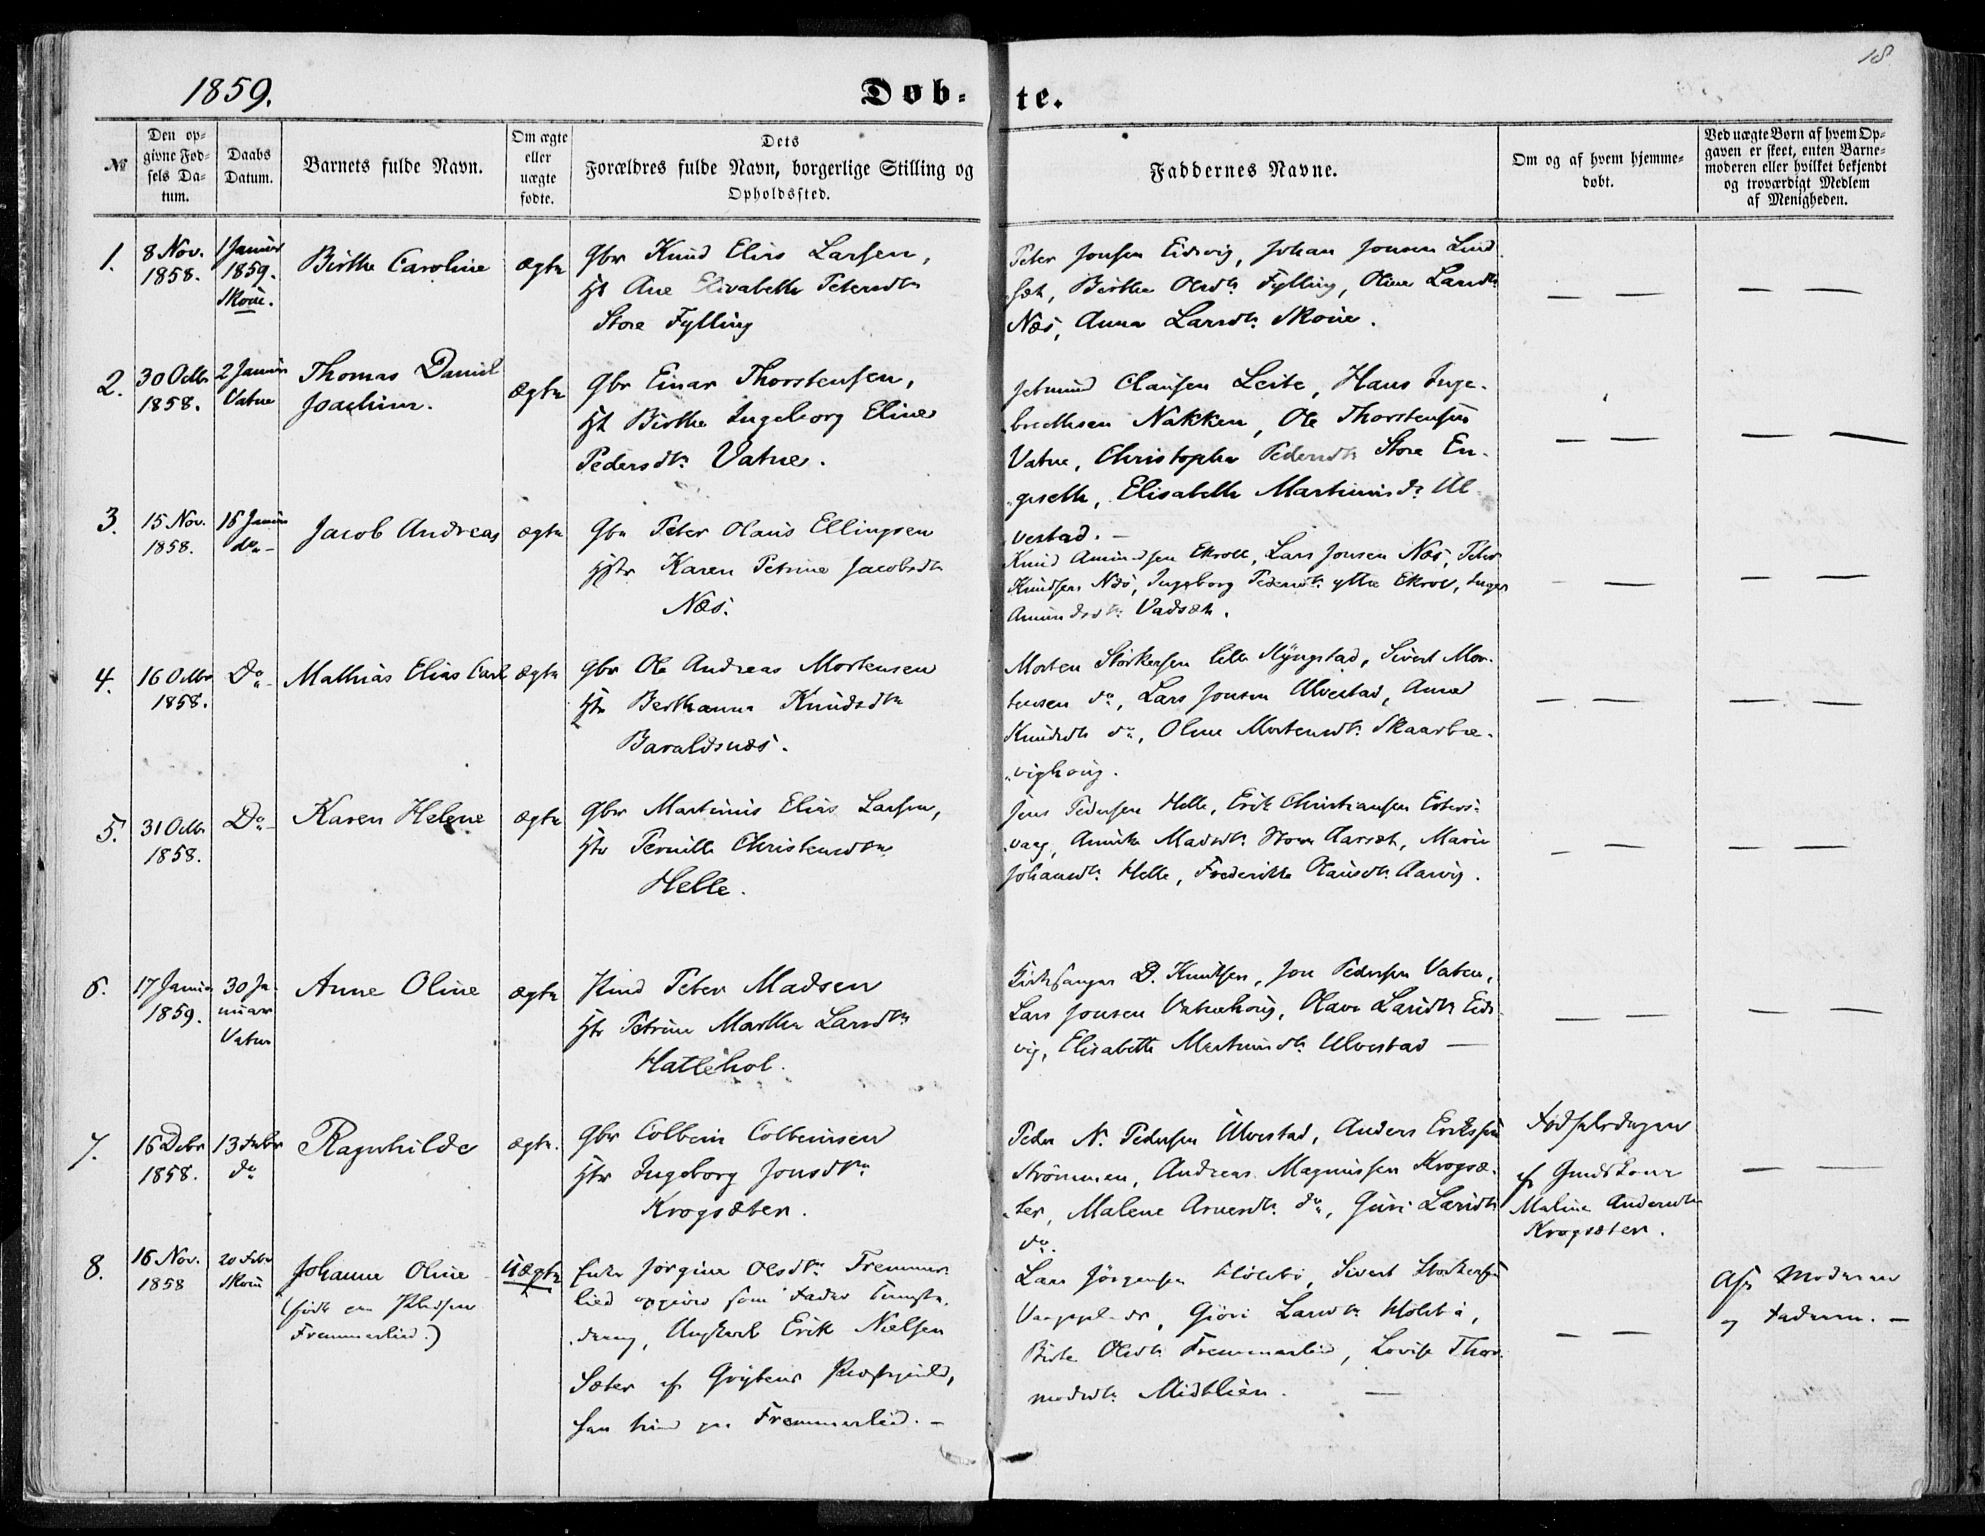 18
1859.
Døb- te.
№
Den op-
givne Fød-
sels Da-
tum.
Daabs
Datum.
Barnets fulde Navn.
Om ægte
eller
uægte
fødte.
Dets
Forældres fulde Navn, borgerlige Stilling og
Opholdssted.
Faddernes Navne.
Om og af hvem hjemme-
døbt.
Ved uægte Børn af hvem Op-
gaven er skeet, enten Barne-
moderen eller hvilket bekjendt
og troværdigt Medlem
af Menigheden.
1.
8 Nov.
1858.
1 Januar
1859.
Skoue.
Birthe Caroline
ægte
Gbr Knud Elias Larsen,
H Ane Elisabeth Petersdtr
Store Fylling
Peter Jonsen Eidsvig, Johan Jonsen Lind-
sæt, Birthe Olsdtr Fylling, Oline Larsdtr
Næs, Anna Larsdtr Skoue.
— —
— —
2.
30 Octbr
1858.
2 Januar
Vatne
Thomas Daniel
Joachim.
ægte
Gbr Einar Thorstensen,
H Birthe Ingeborg Eline
Pedersdtr Vatne.
Jetmund Clausen Leite, Hans Inge-
brethsen Nakken, Ole Thorstensen
Vatne, Christophe Pedersdtr Store En-
geseth, Elisabeth Martinusdr Ul-
vestad. —
— —
— —
3.
15 Nov.
1858.
16 Januar
do —
Jacob Andreas
ægte
Gbr Peter Olaus Ellingsen
Hstr Karen Petrine Jacobsdtr
Næs.
Knud Amundsen Ekroll, Lars Jonsen Næs, Peter
Knudsen Næs, Ingeborg Pedersdtr ytre Ekroll, Inger
Amundsdtr Vadsæt.
— —
— —
4.
16 Octbr
1858.
Do
Mathias Elias Carl
ægte
Gbr Ole Andreas Mortensen
Hstr Berthanna Knudsdtr
Baraldsnæs.
Morten Storkersen lille Slyngstad, Sivert Mor-
tensen do, Lars Jonsen Ulvestad, Anne
Knudsdtr do, Oline Mortensdtr Skaarbre-
vighoug.
— —
— —
5.
31 Octbr
1858.
Do —
Karen Helene
ægte
Gbr Martinus Elias Larsen,
Hstr Pernille Christensdtr
Helle.
Jens Pedersen Helle, Erik Christiansen Esters-
vaag, Annike Madsdtr Store Aarsæt, Marie
Johansdtr Helle, Frederikke Olausdtr Aarvig.
— —
— —
6.
17 Januar
1859.
30 Ja-
nuar
Vatne
Anne Oline
ægte
Hmd Peter Madsen
Hstr Petrine Marthe Larsdtr
Hatlehol.
Kirkesanger D. Knutsen, Jon Pedersen Vatne,
Lars Jonsen Vatnehoug, Olave Larsdtr Eids-
vig, Elisabeth Martinusdtr Ulvestad —
— —
— —
7.
16 Decbr
1858.
13 Febr
do
Ragnhilde
ægte.
Gbr Colbein Colbeinsen
Hstr Ingeborg Jonsdtr
Krogsæter.
Peder N. Pedersen Ulvestad, Anders Eriksen
Strømmen, Andreas Magnussen Krogsæ-
ter, Malene Arnesdtr do, Guri Larsdtr
do.
Fødselsdagen
af Gmdskone
Maline Andersdtr
Krogsæter.
— —
8.
16 Nov.
1858
20 Febr
Skoue
Johanne Oline
(født paa Pladsen
Fremmerlied.)
uægte
Enke Jørgine Olsdtr Fremmer-
lied opgives som Fader Tjeneste-
dreng, Ungkarl Erik Nielsen
Sæter af Grytens Præstegjeld,
som tien paa Fremmerlied. —
Lars Jørgensen Holebø, Sivert Storkersen
Gjøri Larsdtr Holebø,
Birte Olsdtr Fremmerlied, Lovise Thor-
modsdtr Midtlien. —
— —
Af Moderen
og Faderen. —